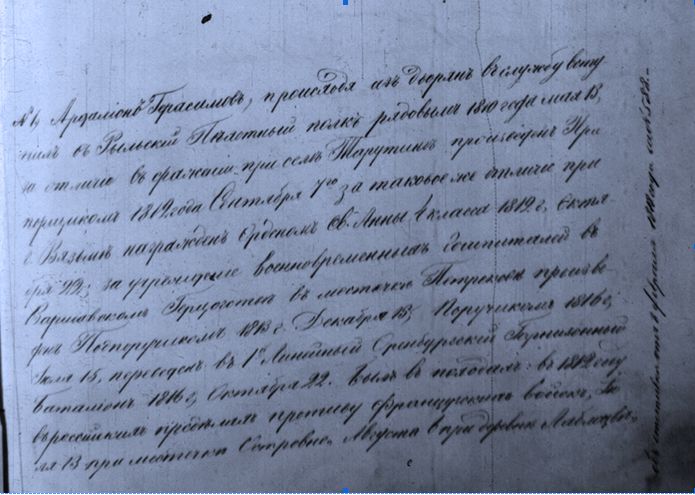 № 1, Герасимовъ, происходя изъ дворянъ въ службу всту
пилъ въ Рыльскій Пѣхотный полкъ рядовымъ 1810 года мая 13,
за отличіе въ сраженіи при селѣ Тарутинѣ произведенъ Пра
порщикомъ 1812 года Сентября за таковое же отличіе при
г. Вязьмѣ награжденъ Орденомъ Св. Анны 4 класса 1812 г. Октя
бря 22; за учрежденіе Военновременныхъ Госпиталей въ
Варшавскомъ Герцогствѣ въ местечкѣ произве
денъ Подпоручикомъ 1813 г. Декабря 13; Поручикомъ 1816 г.
Іюля 15, переведенъ въ 1й Линейный Оренбургскій
Баталіонъ 1816 г. Октября 22. Былъ въ походахъ: въ 1812 году
въ россійскихъ предѣлахъ противу французскихъ войскъ, Ію
ля 13 при местечкѣ Островно, Августа 6 при деревнѣ